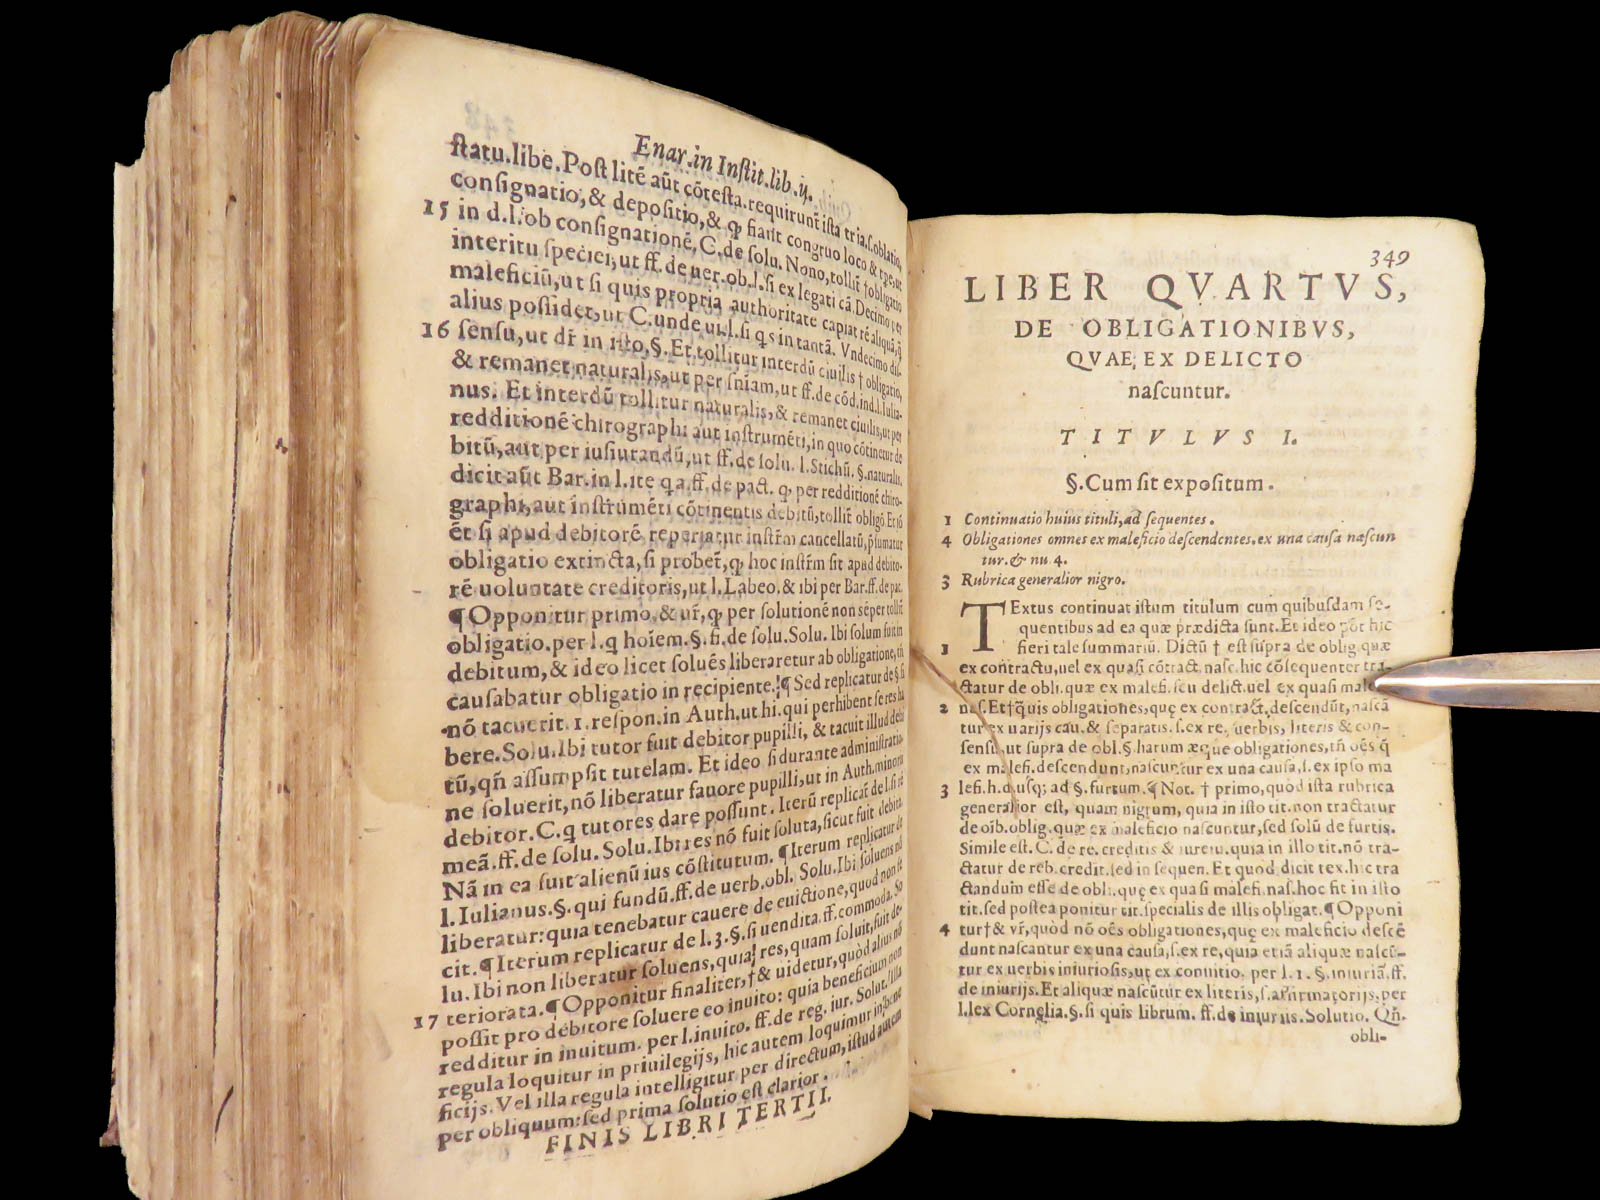 Enar.in Instit.lib.ij.
statu.libe.Post litē aūt cōtesta.requirunt̄ ista tria.s.oblatio,
consignatio,& depositio,& ꝙ fiant congruo loco & tpe,ut
15 in d.l.ob consignationē,C.de solu. Nono,tollit̄ †obligatio
interitu speciei,ut ff.de uer.ob.l.si ex legati cā.Decimo per
maleficiū,ut si quis propria authoritate capiat rē aliquā,q̄
alius possidet,ut C.unde ui.l.si q̄s in tantā. Vndecimo dis
16 sensu,ut dr̄ in isto.§.Et tollitur interdū ciuilis † obligatio,
& remanet naturalis,ut per sn̄iam,ut ff.de cōd.ind.l.Iulia-
nus. Et interdū tollitur naturalis,& remanet ciuilis,ut per
redditionē chirographi aut instrumēti,in quo cōtinetur de
bitū,aut per iusiurandū,ut ff.de solu. l.Stichū. §.naturalis.
dicit aūt Bar.in l.ite q a.ff.de pact. ꝙ per redditionē chiro-
graphi,aut instrumēti cōtinentis debitū,tollit̄ obligō Et iō
ēt si apud debitorē, reperiatur instr̄m cancellatū,p̄sumatur
obligatio extincta,si probet̄,ꝙ hoc instr̄m sit apud debito-
rē uoluntate creditoris,ut l.Labeo.& ibi per Bar.ff.de pac.
¶Opponitur primo,& ur̄,ꝙ per solutionē non sēper tollit̄
obligatio.per l.q hoīem.§.fi.de solu.Solu. Ibi solum fuit in
debitum,& ideo licet soluēs liberaretur ab obligatione,tn̄
causabatur obligatio in recipiente.¶Sed replicatur de §.si
nō tacuerit.1.respon.in Auth.ut hi.qui perhibent se res ha
bere.Solu.Ibi tutor fuit debitor pupilli, & tacuit illud debi
tū,qn̄ assumpsit tutelam. Et ideo si durante administratio
ne soluerit,nō liberatur fauore pupilli,ut in Auth.minoris
debitor.C.q tutores dare possunt. Iterū replicat̄ de l.si rē
meā.ff.de solu.Solu.Ibi res nō fuit soluta,sicut fuit debita.
Nā in ea fuit alienū ius cōstitutum. ¶Iterum replicatur de
l.Iulianus.§.qui fundū.ff.de uerb.obl. Solu.Ibi soluens nō
liberatur:quia tenebatur cauere de euictione,quod non fe
cit.¶Iterum replicatur de l.3.§.si uendita.ff.commoda. So
lu.Ibi non liberatur soluens,quia res,quam soluit,fuit de-
17 teriorata.¶Opponitur finaliter,†& uidetur,quòd alius nō
possit pro debitore soluere eo inuito: quia beneficium non
redditur in inuitum. per l.inuito. ff.de reg. iur. Solut. Illa
regula loquitur in priuilegijs, hic autem loquimur in bene
ficijs. Vel illa regula intelligitur per directum, istud autem
per obliquum:sed prima solutio est clarior.
FINIS LIBRI TERTII.
349
LIBER QVARTVS,
DE OBLIGATIONIBVS,
QVAE EX DELICTO
nascuntur.
TITVLVS I.
§.Cum sit expositum.
1 Continuatio huius tituli,ad sequentes.
4 Obligationes omnes ex maleficio descendentes.ex una causa nascun
tur.& nu 4.
3 Rubrica generalior nigro.
TExtus continuat istum titulum cum quibusdam se-
quentibus ad ea quæ prædicta sunt.Et ideo pōt hic
1 fieri tale summariū. Dictū † est supra de oblig.quæ
ex contractu,uel ex quasi cōtract.nasc.hic cōsequenter tra-
ctatur de obli.quæ ex malefi.seu delict.uel ex quasi male
2 nas.Et†q̄uis obligationes,quę ex contract.descendūt,nascā
tur ex uarijs cau.& separatis.s.ex re, uerbis, literis & con-
sensu,ut supra de obl.§.harum æque obligationes,tn̄ oēs q̄
ex malefi.descendunt,nascuntur ex una causa,s.ex ipso ma
3 lefi.h.d.usq; ad §.furtum.¶Not. † primo,quòd ista rubrica
generalior est, quam nigrum, quia in isto tit.non tractatur
de oīb.oblig.quæ ex maleficio nascuntur,sed solū de furtis.
Simile est. C. de re. creditis & iureiu.quia in illo tit.nō tra-
ctatur de reb.credit.sed in sequen. Et quod dicit tex.hic tra
ctandum esse de obli.quę ex quasi malefi.nas.hoc fit in isto
tit.sed postea ponitur tit.specialis de illis obligat.¶Opponi
4 tur†& ur̄,quòd nō oēs obligationes,quę ex maleficio descē
dunt nascantur ex una causa,s.ex re,quia etiā aliquæ nascū-
tur ex uerbis iniuriosis,ut ex conuitio. per l. 1. §.iniuriā.ff.
de iniurijs.Et aliquæ nascūtur ex literis,s.affirmatorijs.per
l.lex Cornelia.§.si quis librum. ff.de iniuriis.Solutio. Qn̄.
obli-